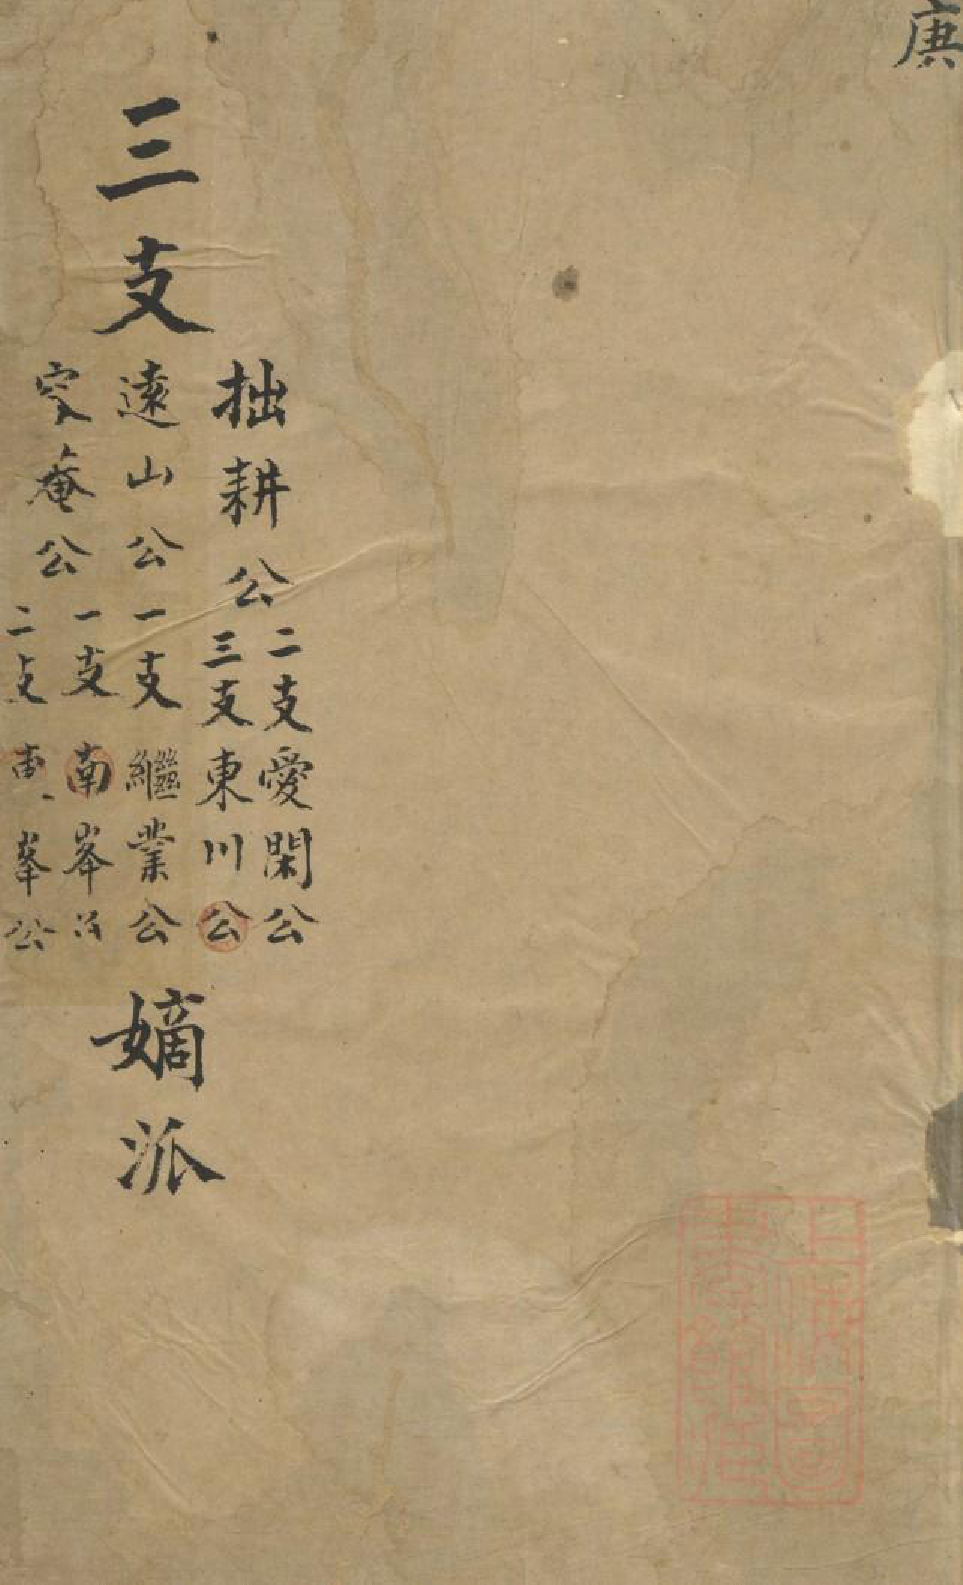 庚
三支
拙耕公
二支愛閑公
三支東川公
遠山公一支繼業公
守菴公
一支南峯公
二支東峯公
嫡派
上海圖書館藏